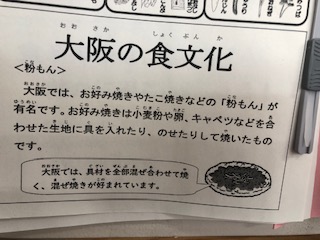 大阪の食文化
<粉もん>
大阪では、お好み焼きやたこ焼きなどの「粉もん」が
有名です。お好み焼きは小麦粉や卵、キャベツなどを合
わせた生地に具を入れたり、のせたりして焼いたもの
です。
大阪では、具材を全部混ぜ合わせて焼
く、混ぜ焼きが好まれています。